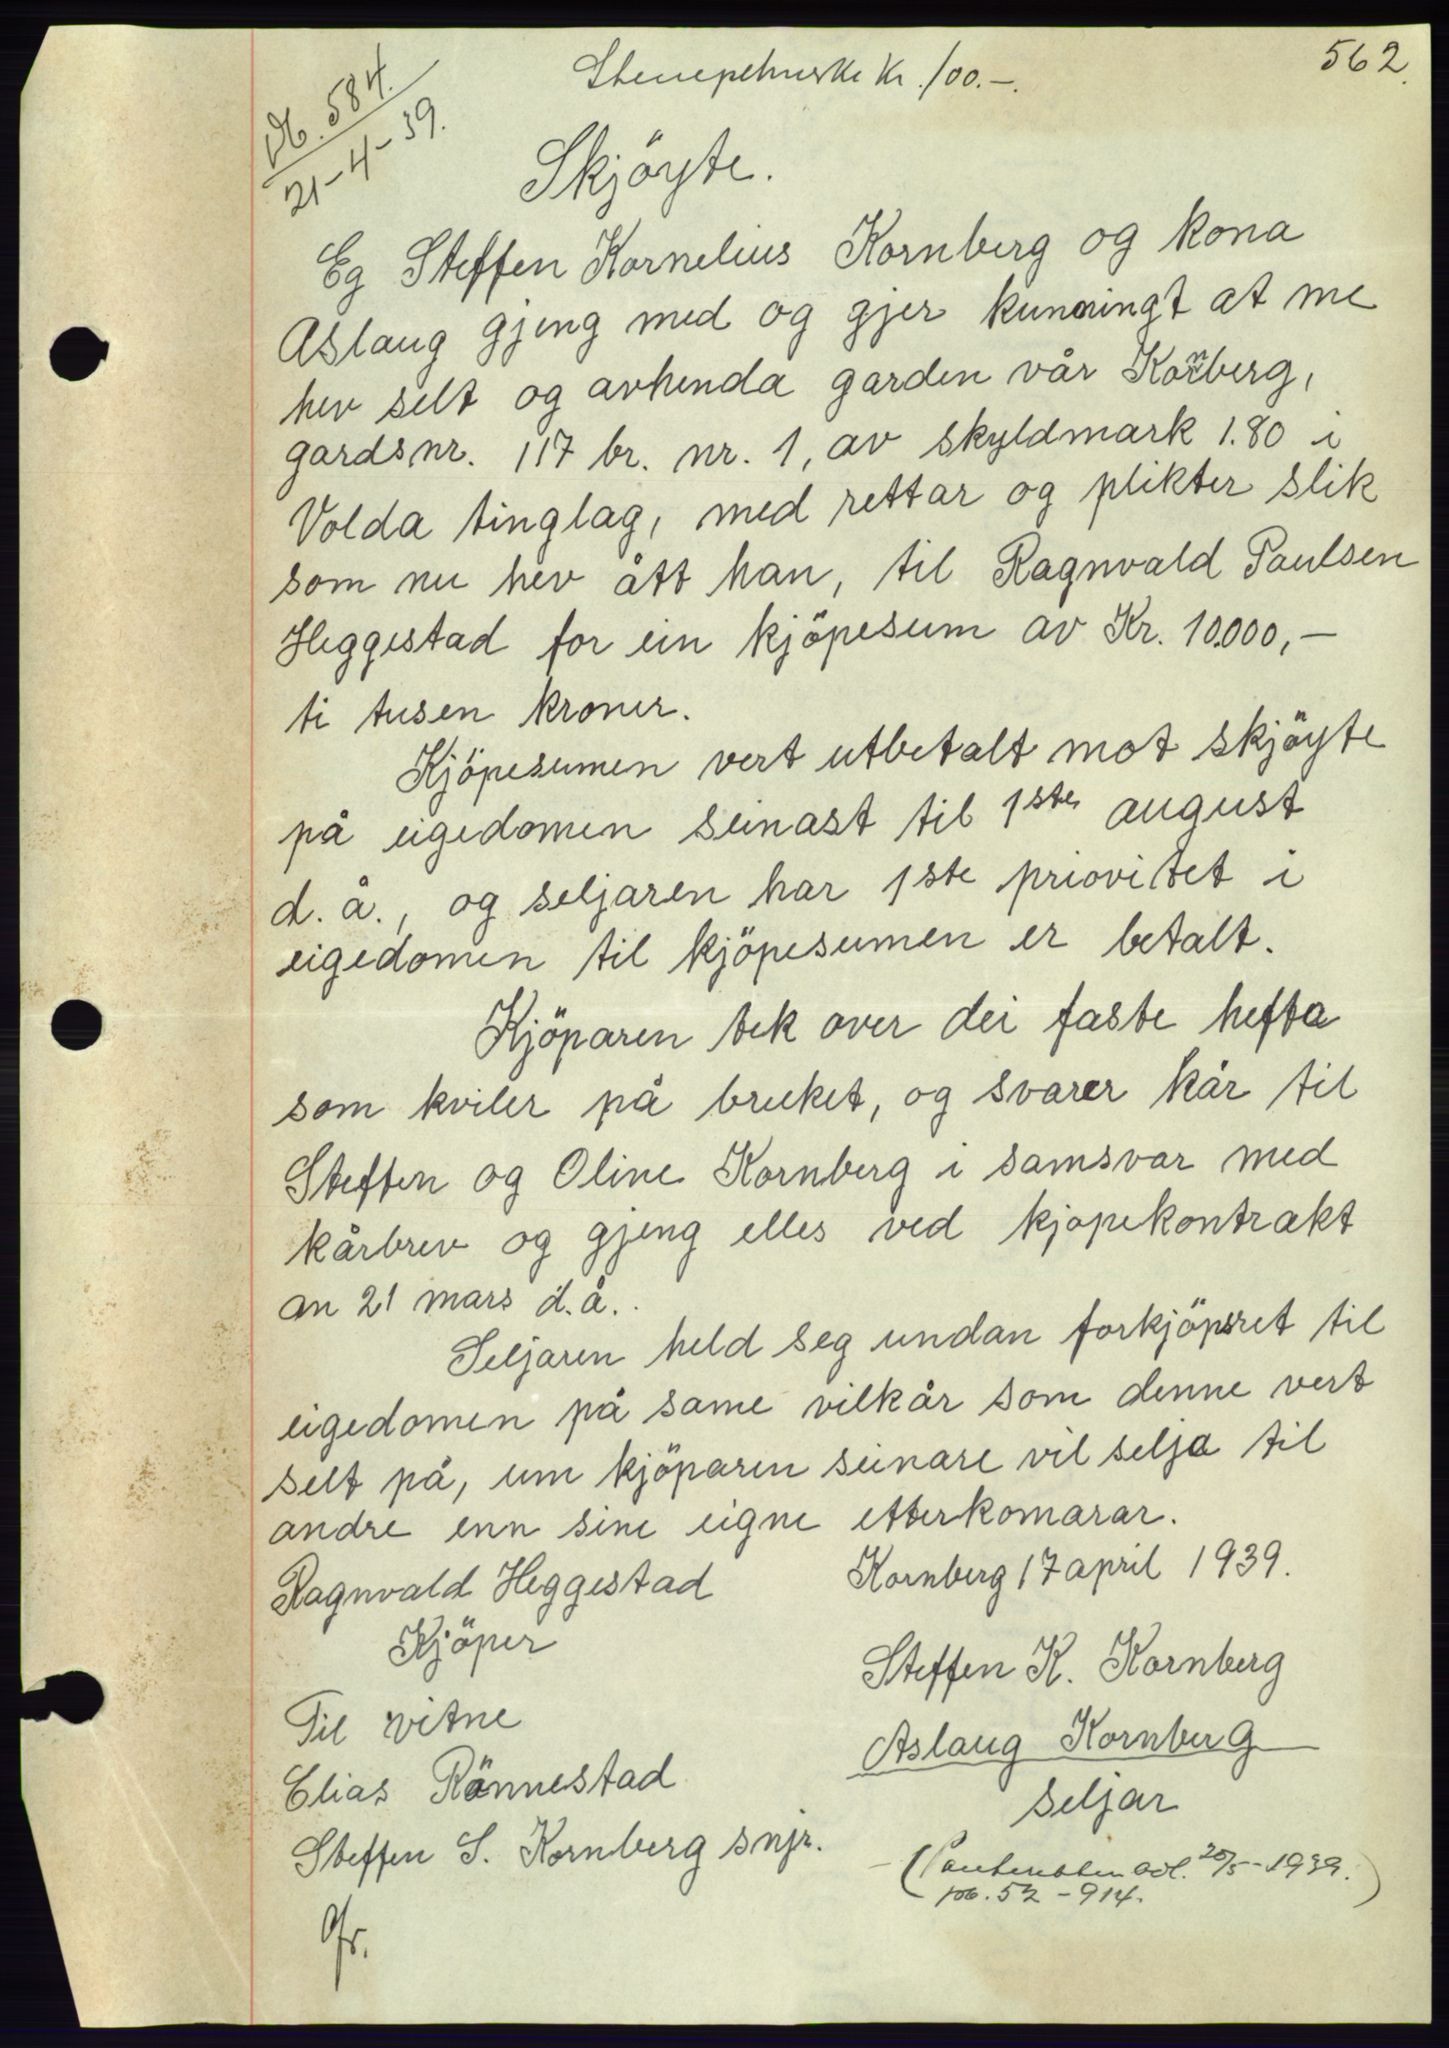 562.
Stempelmerke Kr. 100.-.
Nr. 584.
21-4-39.
Skjöyte.
Eg Steffen Kornelius Kornberg og kona
Aslaug gjeng med og gjer kunningt at me
hev selt og avhenda garden vår Kornberg,
gardsnr. 117 br. nr. 1, av skyldmark 1.80 i
Volda tinglag, med rettar og plikter slik
som nu hev ått han, til Ragnvald Paulsen
Heggestad for ein kjöpesum av Kr. 10.000,-
ti tusen kroner.
Kjöpesumen vert utbetalt mot skjöyte
på eigedomen seinast til 1ste august
d. å., og seljaren har 1ste priovitet i
eigedomen til kjöpesumen er betalt.
Kjöparen tek over dei faste hefta
som kviler på bruket, og svarer kår til
Steffen og Oline Kornberg i samsvar med
kårbrev og gjeng elles ved kjopekontrakt
an 21 mars d.å..
Seljaren held seg undan forkjöpsret til
eigedomen på same vilkår som denne vert
selt på, um kjöparen seinare vil selja til
andre enn sine eigne etterkomarar.
Kornberg 17 april 1939.
Ragnvald Heggestad
Kjöper
Steffen K. Kornberg
Aslaug Kornberg
seljar
Til vitne
Elias Rönnestad
Steffen S. Kornberg snjr.
(Panteobl. avl. 20/5-1939.
pb. 52 - 914.)